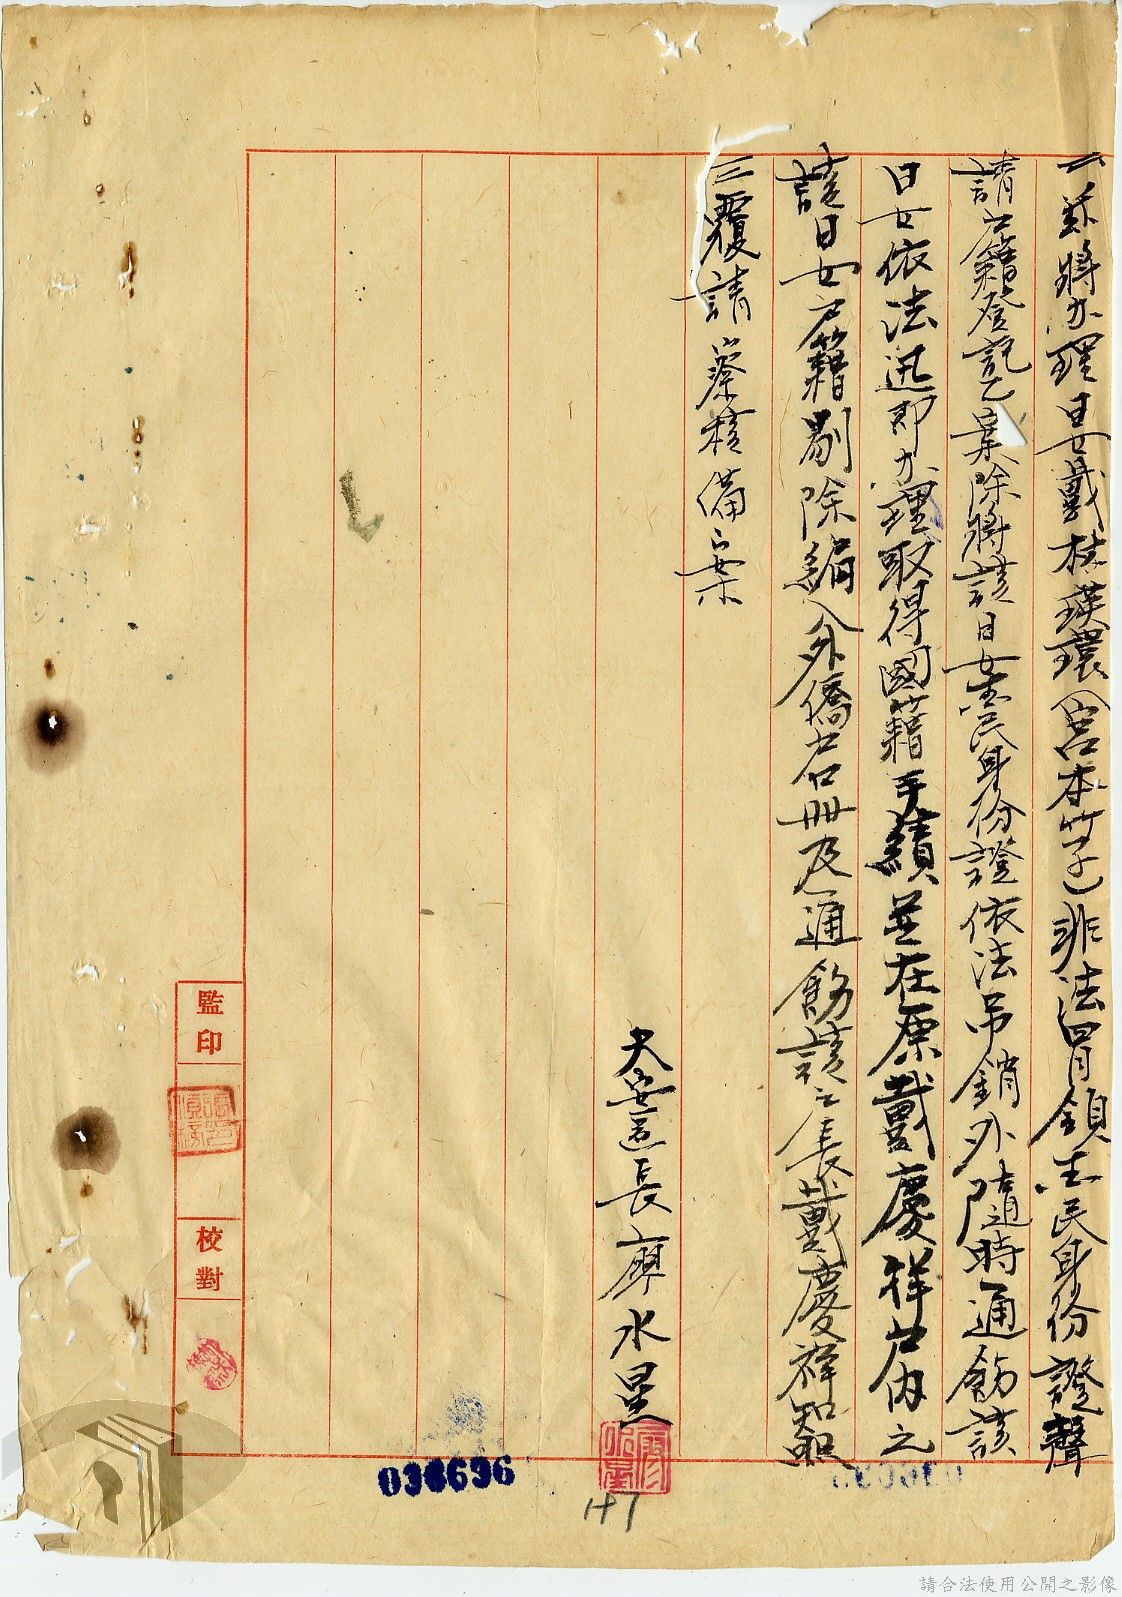 二茲將办理日女戴桂瑛環(宮本竹子)非法冒領国民身份證聲
請户籍登記乙案除將該日女国民身份證依法吊銷外隨時通飭該
日女依法迅即办理取得國籍手續並在原戴慶祥户內之
該日女户籍剔除編入外僑名冊及通飭該户長戴慶祥知照
三覆請察核備案
大安區長廖水星
廖水星
147
036696
監印
校對
請合法使用公開之影像